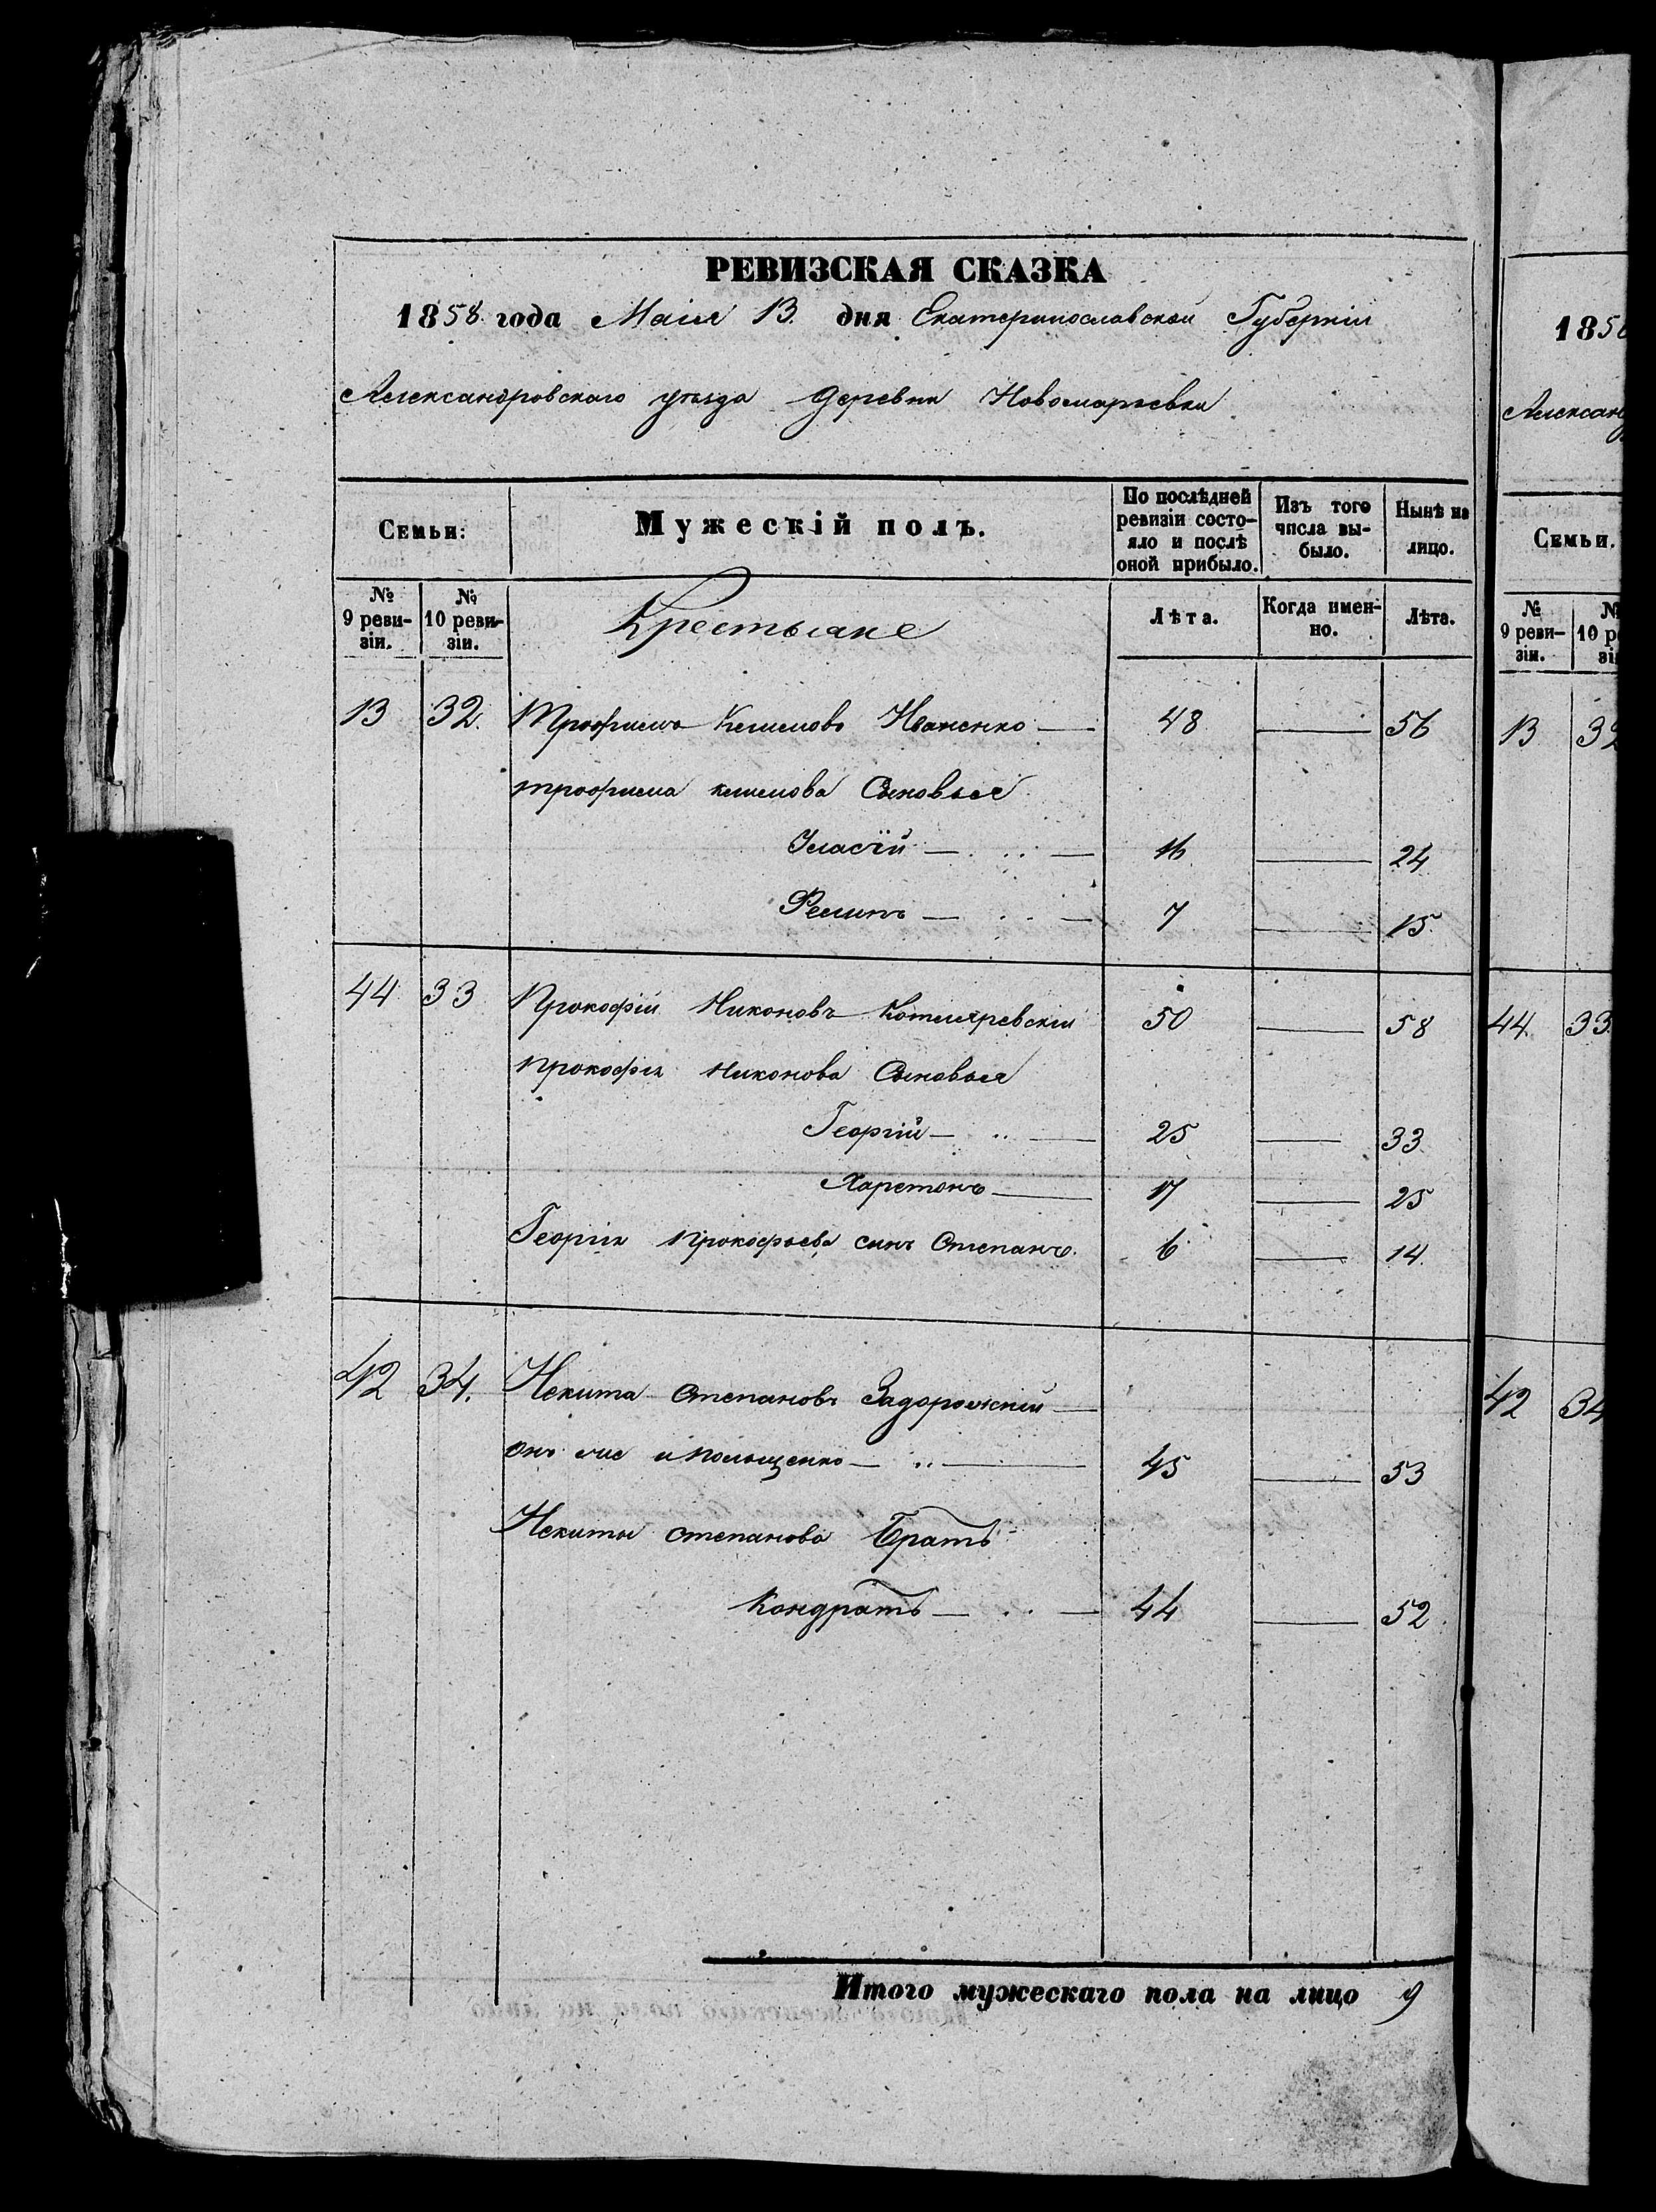 РЕВИЗСКАЯ СКАЗКА
1858 года Маія 13. дня Екатеринославской Губерніи
Александровского уезда деревни Новомарьевки
Семьи: Мужескій полъ. По послѣдней ревизіи состо-яло и послѣ оной прибыло. Изъ того числа вы-было. Нынѣ на лицо.
№ 9 реви-зіи. № 10 реви-зіи. Крестьяне Лѣта. Когда имен-но. Лѣта.
13 32. Трофимъ Климовъ Иваненко — 48 — 56
трофима климова Сыновья
Уласій — 16 — 24
Филипъ — 7 — 15.
44 33 Прокофій Никоновъ Котляревскій 50 — 58
прокофія никонова Сыновья
Георгій — 25 — 33
Харетонъ — 17 — 25
Георгія прокофьева сынъ Степанъ. 6 — 14.
42 34. Некита степановъ Задорожній —
онъ же и полищенко — 45 — 53
Некиты степанова Братъ
Кондратъ — 44 — 52
Итого мужескаго пола на лицо 9
185
Александ
Семьи.
№ 9 реви-зіи.
13 32
44. 33.
42 34